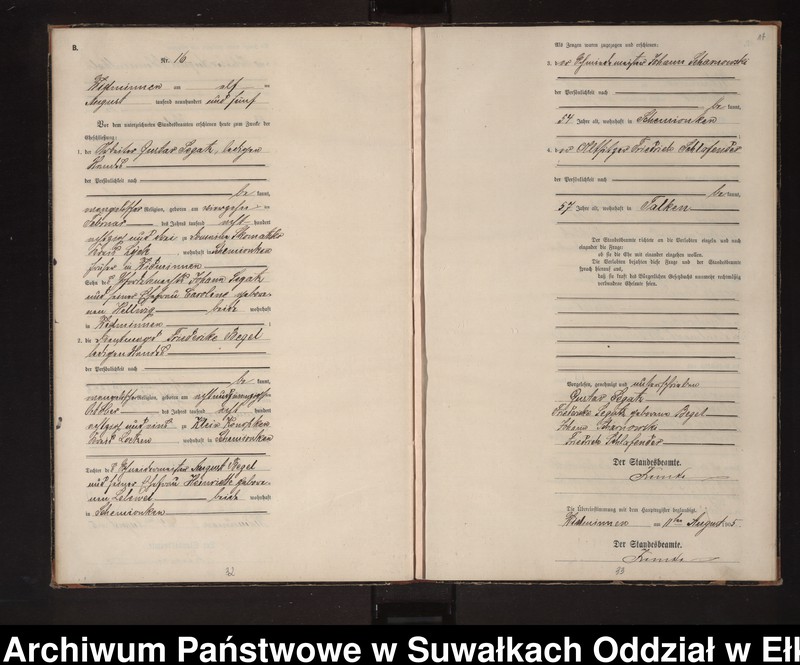 B.
Nr. 16
Widminnen am elf ten
August tausend neunhundert und fünf
Vor dem unterzeichneten Standesbeamten erschienen heute zum Zwecke der
Eheschließung:
1. der Arbeiter Gustav Segatz, ledigen
Standes
der Persönlichkeit nach
be kannt,
evangelischer Religion, geboren am vierzehn ten
Februar des Jahres tausend acht hundert
achtzig und zu
Kreis Lyck, wohnhaft in Schemionken
früher in Widminnen
Sohn des Johann Segatz
und seiner Ehefrau Caroline gebore-
nen Hellwig beide wohnhaft
in Widminnen
2. die Friederike Begel
ledigen Standes
der Persönlichkeit nach
be kannt,
evangelischer Religion, geboren am achtundzwanzigsten
Oktober des Jahres tausend acht hundert
achtzig und eins zu Klein Konopken
Kreis Loetzen, wohnhaft in Schemionken
Tochter des Schneidermeister August Begel
und seiner Ehefrau Henriette gebore-
nen beide wohnhaft
in Schemionken
32
Als Zeugen waren zugezogen und erschienen:
3. der Schmiedemeister Johann Scharnowski
der Persönlichkeit nach
be kannt,
54 Jahre alt, wohnhaft in Schemionken
4. der Altsitzer Friedrich Schlofender
der Persönlichkeit nach
be kannt,
57 Jahre alt, wohnhaft in Talken
Der Standesbeamte richtete an die Verlobten einzeln und nach
einander die Frage:
ob sie die Ehe mit einander eingehen wollen.
Die Verlobten bejahten diese Frage und der Standesbeamte
sprach hierauf aus,
daß sie kraft des Bürgerlichen Gesetzbuchs nunmehr rechtmäßig
verbundene Eheleute seien.
Vorgelesen, genehmigt und unterschrieben
Gustav Segatz
Friederike Segatz geborene Begel
Johann Scharnowski
Friedrich Schlofender
Der Standesbeamte.
Die Übereinstimmung mit dem Hauptregister beglaubigt.
Widminnen am 11ten August 1905
Der Standesbeamte.
33
Archiwum Państwowe w Suwałkach Oddział w Ełk